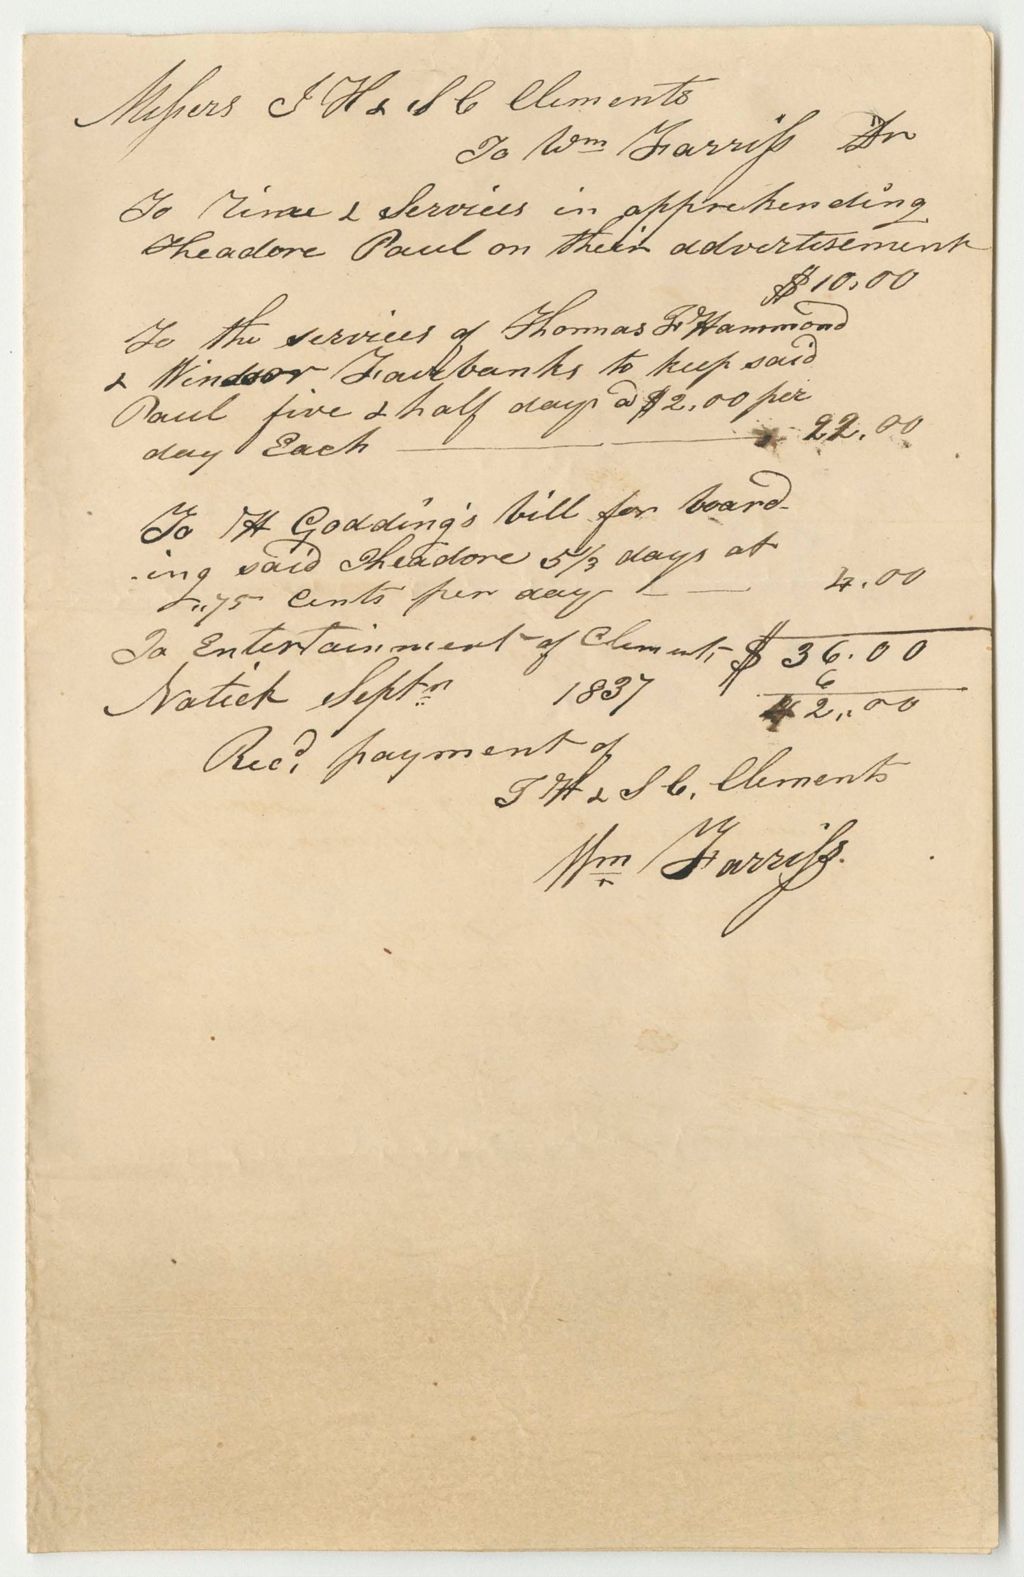 Messers J H & S C Clements
To Wm Farriss Dr
To Time & Services in apprehending
Theadore Paul on their advertisement
$10.00
To the services of Thomas F Hammond
& Windsor Fairbanks to keep said
Paul five & half days @ $2,00 per
day Each 22.00
To H Godding's bill for board-
-ing said Theadore 5 1/3 days at
75 cents per day 4.00
To Entertainment of Clements $36.00
6
Natick Sept 1837 42,00
Recd, payment of
J H & S C, Clements
Wm Farriss.